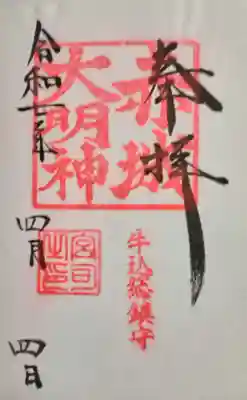 奉拝
赤城
大明神
牛込総鎮守
宮司之印
令和二年
四月
四日